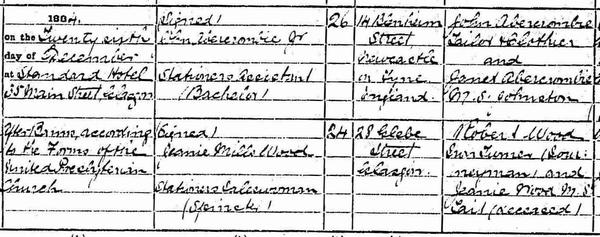 1884.
on the Twenty sixth
day of December
at Standard Hotel
35 Main Street, Glasgow
(Signed)
John Abercrombie Jr
Stationers Assistant
(Bachelor)
26
14 Blenheim
Street,
Newcastle
on Tyne
England.
John Abercrombie
Tailor & Clothier
and
Janet Abercrombie
M.S. Johnston
After Banns, according
to the Forms of the
United Presbyterian
Church
(Signed)
Jeanie Mills Wood
Stationers Saleswoman
(Spinster)
24
28 Glebe
Street
Glasgow.
Robert Wood
Iron Turner (Jour-
neyman) and
Jeanie Wood M.S.
Tait (deceased)